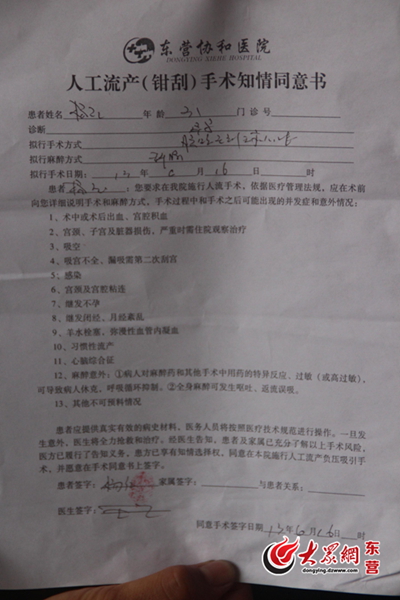 东营协和医院
DONGYING XIEHE HOSPITAL
人工流产(钳刮)手术知情同意书
患者姓名 年 龄 31 门 诊 号
诊断
拟行手术方式
拟行麻醉方式
拟行手术日期: 13 年 6 月 16 日 时
患者 ,您要求在我院施行人流手术,依据医疗管理法规,应在术前
向您详细说明手术和麻醉方式、手术过程中和手术之后可能出现的并发症和意外情况:
1、术中或术后出血、宫腔积血
2、宫颈、子宫及脏器损伤,严重时需住院观察治疗
3、吸空
4、吸宫不全、漏吸需第二次刮宫
5、感染
6、宫颈及宫腔粘连
7、继发不孕
8、继发闭经、月经紊乱
9、羊水栓塞、弥漫性血管内凝血
10、习惯性流产
11、心脑综合征
12、麻醉意外:①病人对麻醉药和其他手术中用药的特异反应、过敏(或高过敏),
可导致病人休克、呼吸循环抑制、②全身麻醉可发生呕吐、返流误吸。
13、其他不可预料情况
患者应提供真实有效的病史材料,医务人员将按照医疗技术规范进行操作。一旦发
生意外,医生将全力抢救和治疗。经医生告知,患者及家属已充分了解以上手术风险,
医方已履行了告知义务,患方已享有知情选择权,同意在本院施行人工流产负压吸引手
术,并愿意在手术同意书上签字。
患者签字: 家属签字: 与患者关系:
医生签字:
同意手术签字日期 13 年 6 月 16 日 时
大众網 东营
dongying.dzwww.com